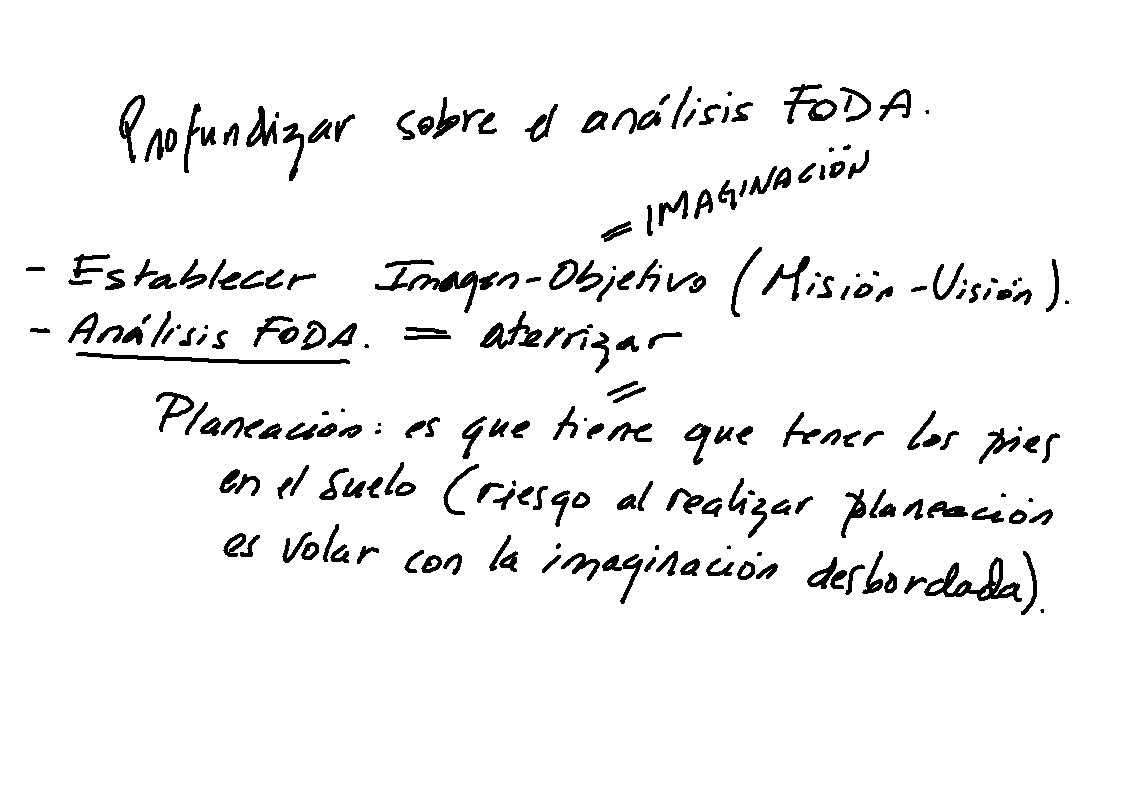 Profundizar sobre el análisis FODA.
= IMAGINACIÓN
- Establecer Imagen-Objetivo (Misión-Visión).
- Análisis FODA. = aterrizar
=
Planeación: es que tiene que tener los pies
en el suelo (riesgo al realizar planeación
es volar con la imaginación desbordada).